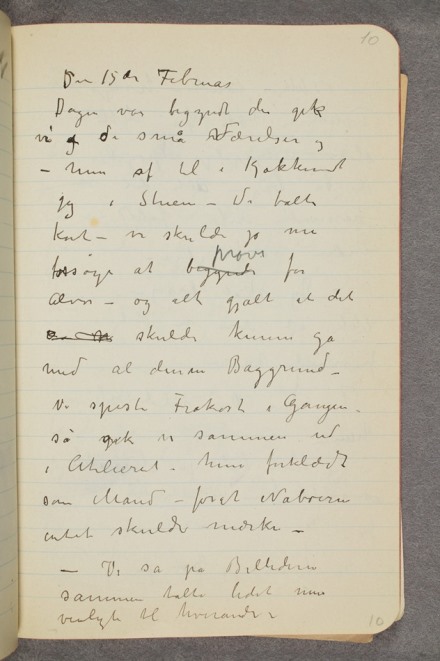 10
Den 15de Februar
Dagen var begyndt der gik
vi i de små Værelser og
– hun af til i Køkkenet
jeg i Stuen – Vi talte
kort – vi skulde jo nu
prøve
forsøge at begynde for
alvor – og alt gjalt at det
skulde kunne gå
med al denne Baggrund –
Vi spiste Frokost i Gangen –
så gik vi sammen ud
i Atelieret – hun forklædt
som Mand – forat Naboerne
intet skulde mærke –
– Vi så på Billederne
sammen talte lidet men
venligt til hverandre
10